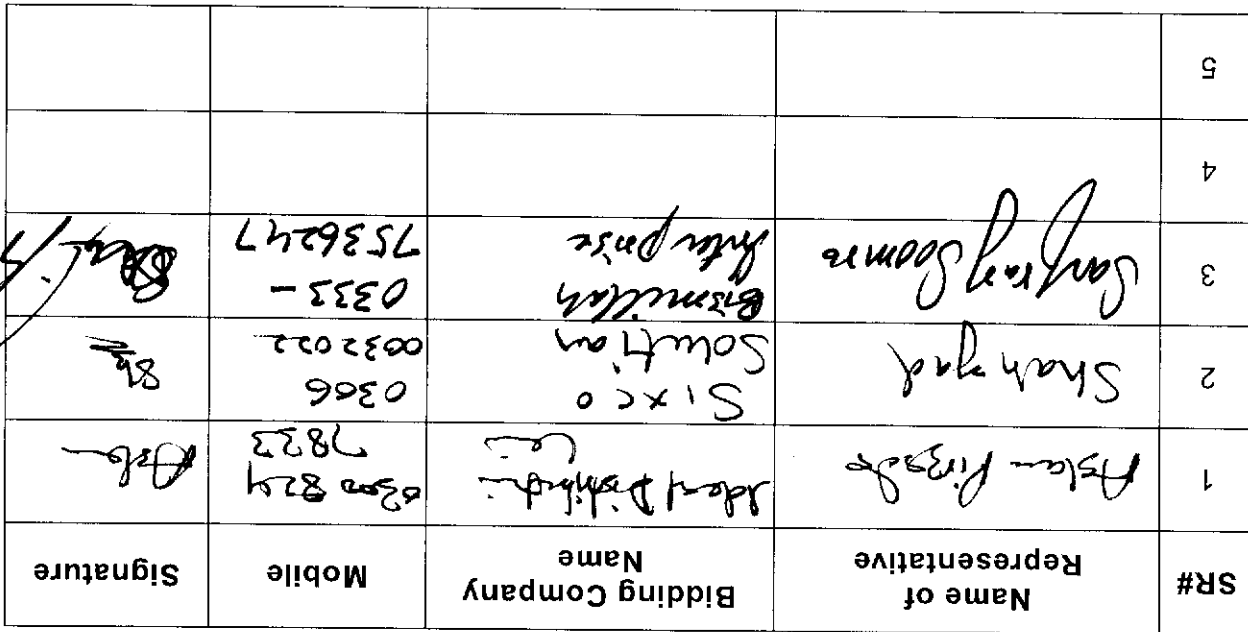 SR#
Name of
Representative
Bidding Company
Name
Mobile
Signature
1
Aslam Pirzada
Ideal Distribution
0300 824
7833
2
Shahzad
Sixco
Solution
0306
0032022
3
Sarfraz Soomro
Bismillah
Interprise
0333-
7536247
4
5